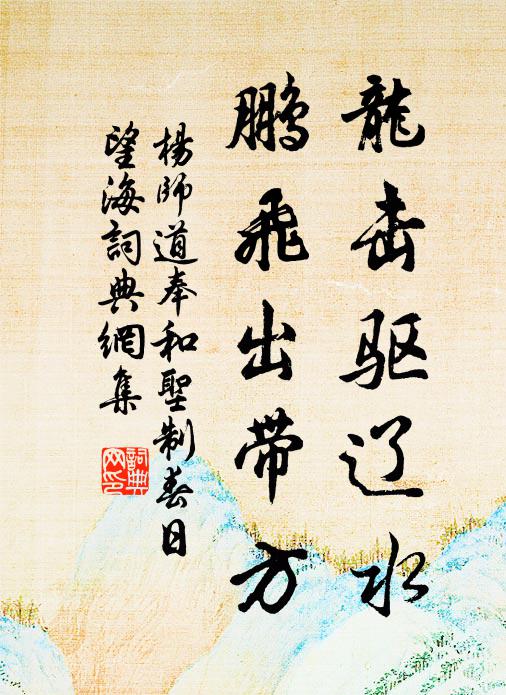 龍击驱辽水
鵬飛出带方
楊師道奉和聖制春日
望海詞典網集
詞典网印